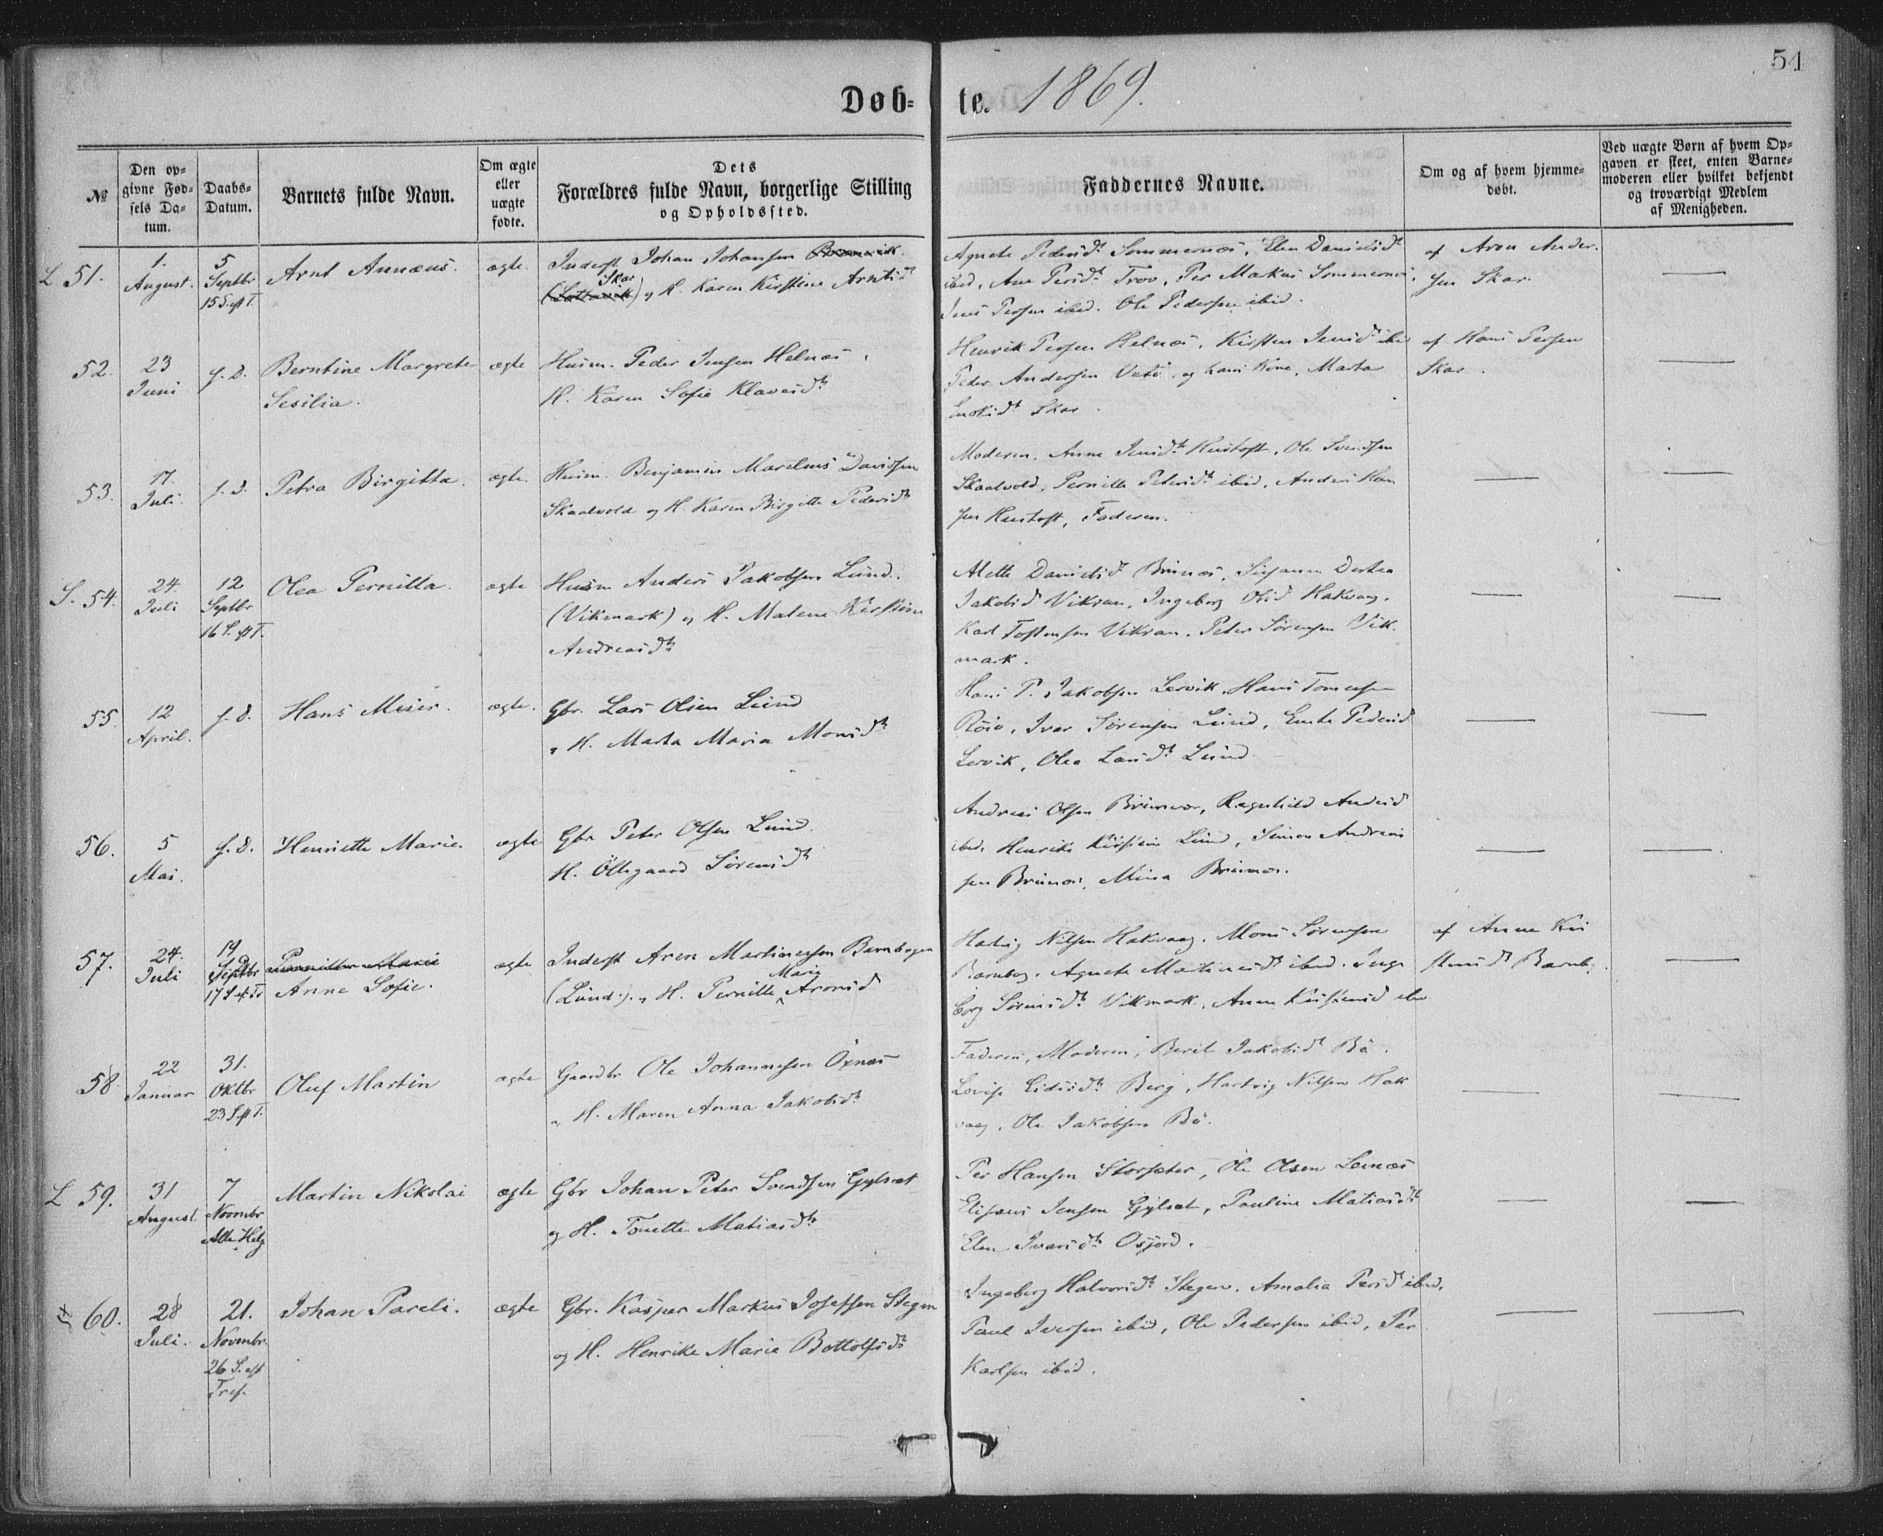 54
Døb- te. 1869.
№
Den op-
givne Fød-
sels Da-
tum.
Daabs-
Datum.
Barnets fulde Navn.
Om ægte
eller
uægte
fødte.
Dets
Forældres fulde Navn, borgerlige Stilling
og Opholdssted.
Faddernes Navne.
Om og af hvem hjemme-
døbt.
Ved uægte Børn af hvem Op-
gaven er skeet, enten Barne-
moderen eller hvilket bekjendt
og troværdigt Medlem
af Menigheden.
L 51.
1.
August.
5
Septbr
15 S. eft T.
Arnt Annæus.
ægte.
Inderst Johan Johansen
Skar
og H. Karen Kirstine Arntsdt
Agnete Pedersdt Sommernæs, Elen Danielsdt
ibid, Ane Persdt Trov, Per Markus Sommernæs,
Jens Persen ibid. Ole Pedersen ibid.
af Aron Ander-
sen Skar.
52.
23
Juni
s. d.
Berntine Margrete
Sesilia.
ægte
Husm. Peder Jensen Helnæs,
H. Karen Sofie Klausdt
Henrik Persen Helnæs, Kirsten Jensdt ibid
Peder Andersen, og hans Kone, Marta
Skar.
af Hans Persen
Skar.
53.
17.
Juli.
s. d.
Petra Birgitta.
ægte.
Husm. Benjamin Marelius Davidsen
Skaalvold og H. Karen Birgitte Pedersdt
Moderen, Anne Jensdt, Ole Svendsen
Skaalvold, Pernille Petersdt ibid, Anders Han
sen, Faderen.
S. 54.
24.
Juli
12
Septbr
16 S. eft T.
Olea Pernilla.
ægte
Husm Anders Jakobsen Lund.
(Vikmark) og H. Malene Kirstine
Andreasdt
Mette Danielsdt Brunæs, Susanna
Jakobsd Vikran, Ingeborg Olsd Hakvaag,
Karl Tostensen Vikran, Peter Sørensen Vik-
mark.
55.
12
April.
s. d.
Hans Meier.
ægte.
Gbr. Lars Olsen Lund
og H. Marta Maria Monsdt
Hans P. Jakobsen Lervik, Hans Tomesen
Røiø, Ivar Sørensen Lund, Pedersd
Lervik, Olea Larsdt Lund.
56.
5
Mai.
s. d.
Henriette Marie.
ægte
Gbr. Peter Olsen Lund.
H. Ollegaard Sørensdt
Andreas Olsen Brunæs, Ragnhild Andersd
ibid. Henrike Kirstine Lund, Simon Andreas
sen Brunæs, Mina Brunæs.
57.
24.
Juli
19
Septbr
17 S. eft T.
Anne Sofie.
ægte
Inderst Aron Martinussen Barnbogen
(Lund.), og H. Pernille Marie Aronsd
Hartvig Nilsen Hakvaag, Mons Sørensen
Barnbog. Agnete Martinusdt ibid. Inge
borg Sørensdt Vikmark, Anne Kristensd ibid
af Anne Kri
stensdt Barnb.
58.
22
Januar
31.
Oktbr
23 S. eft T.
Oluf Martin
ægte
Gaardbr Ole Johannesen Oxnæs
og H. Maren Anna Jakobsdt
Faderen, Moderen, Beril Jakobsdt Bø.
Lovise Berg, Hartvig Nilsen Hak
vaag, Ole Jakobsen Bø.
L 59.
31
August
7
Novembr
Alle Helg
Martin Nikolai
ægte
Gbr Johan Peter Svendsen Gylset
og H. Tonette Matiasdt
Per Hansen Storsæter, Ole Olsen Lænæs
Elisæus Jensen Gylset, Pauline Matiasdt
Elen Ivarsdt Osjord.
60.
28
Juli.
21.
Novembr.
26 S. eft
Tref.
Johan Pareli.
ægte
Gbr. Kasper Markus Josefsen Stegen
og H. Henrike Marie Bottolfsdt
Ingeborg Halvorsdt Stegen. Amalia Persdt ibid,
Paul Iversen ibid, Ole Pedersen ibid, Per
Karlsen ibid.